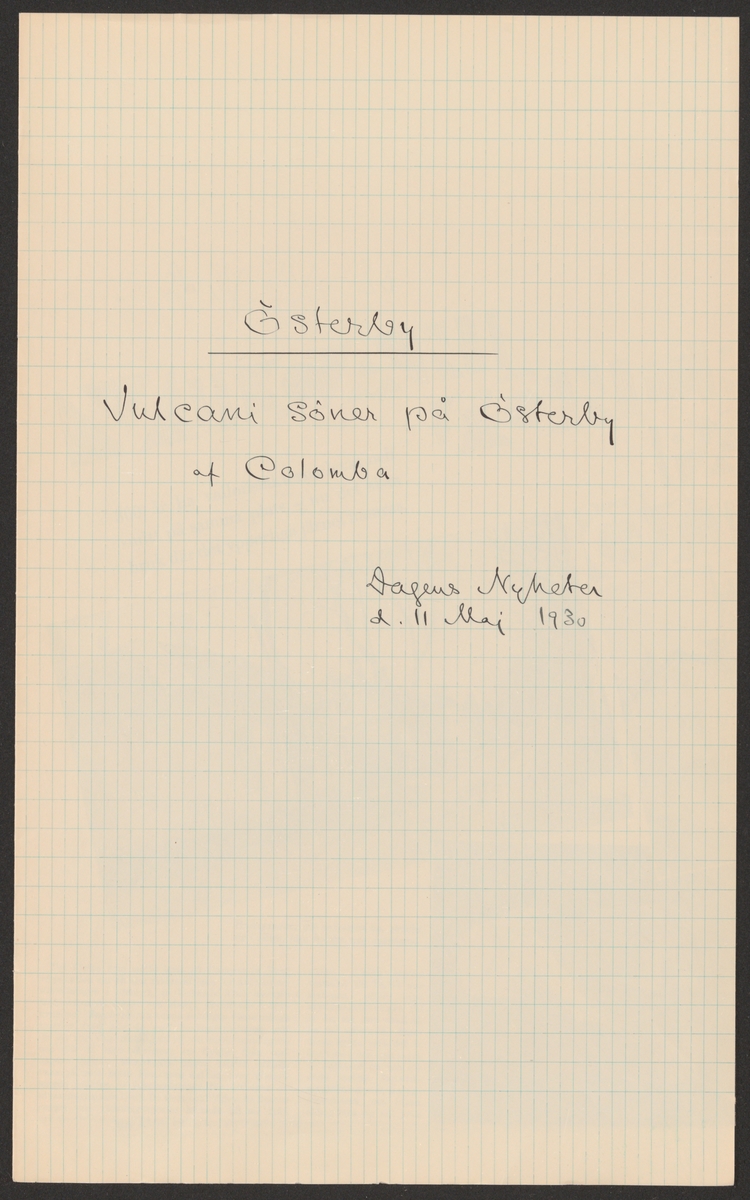 Österby
Vulcani söner på Österby
af Colomba
Dagens Nyheter
d. 11 Maj 1930